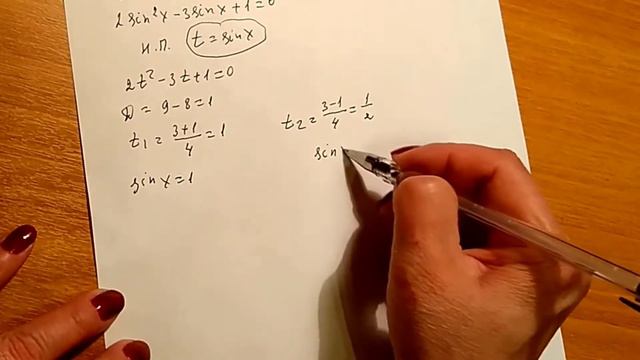 2 sin²x - 3 sinx + 1 = 0
И.П. t = sinx
2t² - 3t + 1 = 0
D = 9 - 8 = 1
t₁ = (3+1)/4 = 1
t₂ = (3-1)/4 = 1/2
sin x = 1
sin